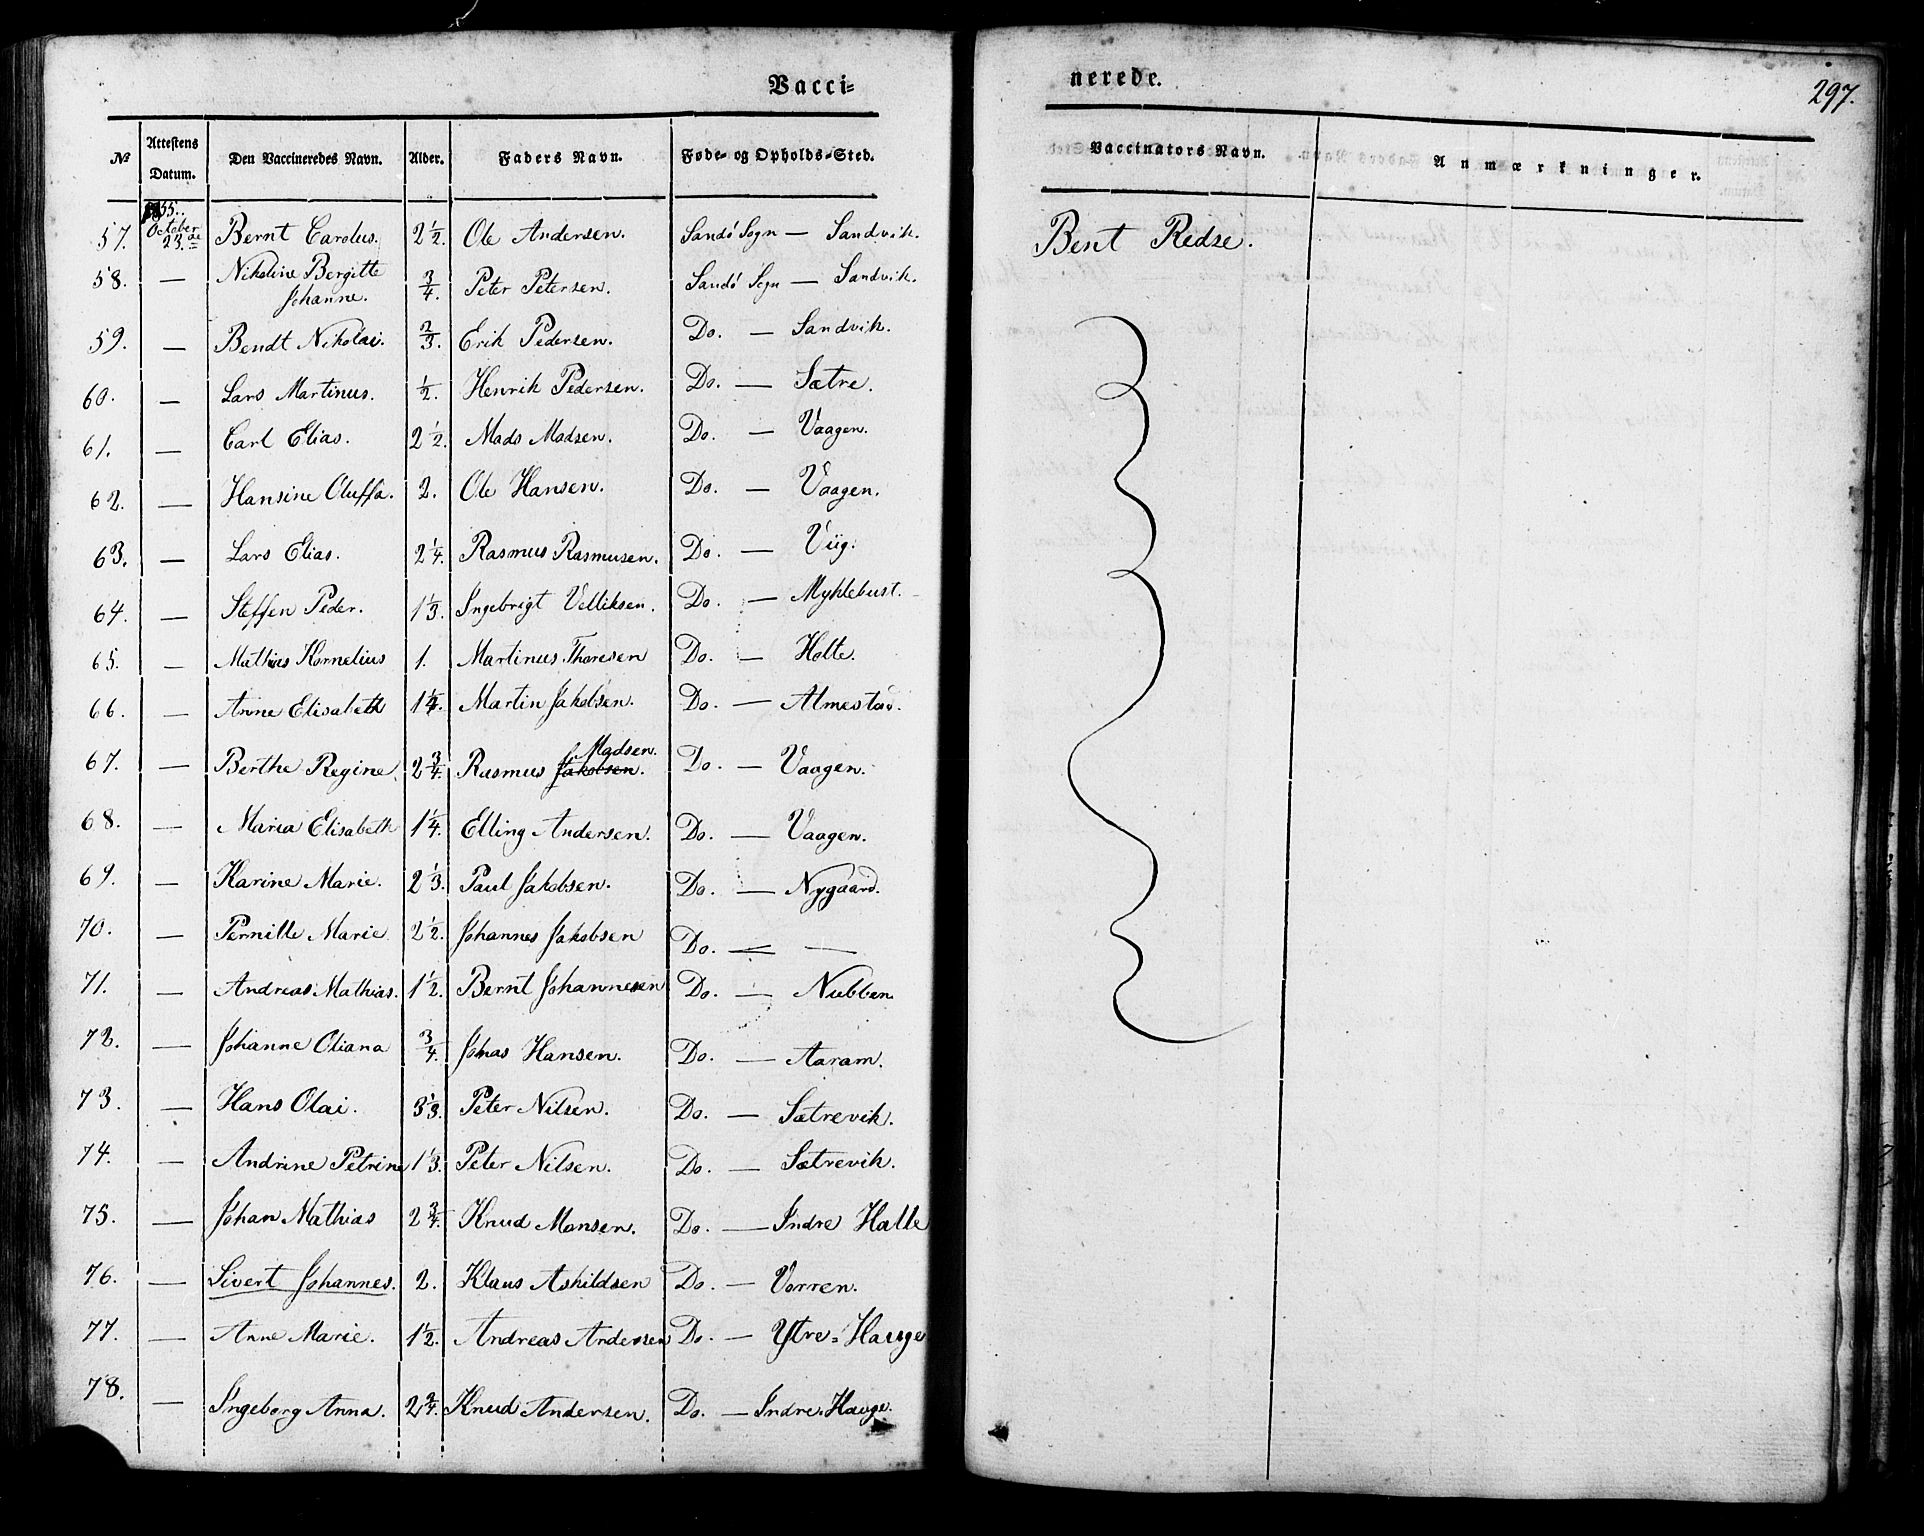 Vacci=
nerede.
297.
№ Attestens Datum. Den Vaccineredes Navn. Alder. Faders Navn. Føde- og Opholds-Sted. Vaccinators Navn. Anmærkninger.
1855.
57. October 23de Bernt Carolus. 2 1/2. Ole Andersen. Sandö Sogn — Sandvik. Bent Redse.
58. — Nikoline Bergitte Johanne. 3/4. Peter Petersen. Sandö Sogn — Sandvik.
59. — Bendt Nikolai. 2/3. Erik Pedersen. Do. — Sandvik.
60. — Lars Martinus. 1/2. Henrik Pedersen. Do. — Sætre.
61. — Carl Elias. 2 1/2. Mads Madsen. Do. — Vaagen.
62. — Hansine Oluffa. 2. Ole Hansen. Do. — Vaagen.
63. — Lars Elias. 2 1/4. Rasmus Rasmusen. Do. — Viig.
64. — Steffen Peder. 1 1/3. Ingebrigt Velliksen. Do. — Myklebust.
65. — Mathias Kornelius 1. Martinus Thoresen Do. — Holte.
66. — Anne Elisabeth 1 1/4. Martin Jakobsen. Do. — Almestad.
67. — Berthe Regine. 2 3/4. Rasmus Jakobsen. Madsen. Do. — Vaagen.
68. — Maria Elisabeth 1 1/4. Elling Andersen. Do. — Vaagen.
69. — Karine Marie. 2 1/3. Paul Jakobsen. Do. — Nygaard.
70. — Pernille Marie 2 1/2. Johannes Jakobsen Do. — —
71. — Andreas Mathias. 1 1/2. Bernt Johannesen Do. — Nubben.
72. — Johanne Oliana 3/4. Johas Hansen. Do. — Aaram.
73. — Hans Olai. 3 1/3. Peter Nilsen. Do. — Sætrevik.
74. — Andrine Petrine 1 1/3. Peter Nilsen. Do. — Sætrevik.
75. — Johan Mathias 2 3/4. Knud Monsen. Do. — Indre Halle
76. — Sivert Johannes. 2. Klaus Askildsen Do. — Vorren.
77. — Anne Marie. 1 1/2. Andreas Andersen Do. — Ytre=Hauge
78. — Ingeborg Anna. 2 2/4. Knud Andersen. Do. — Indre Hauge.